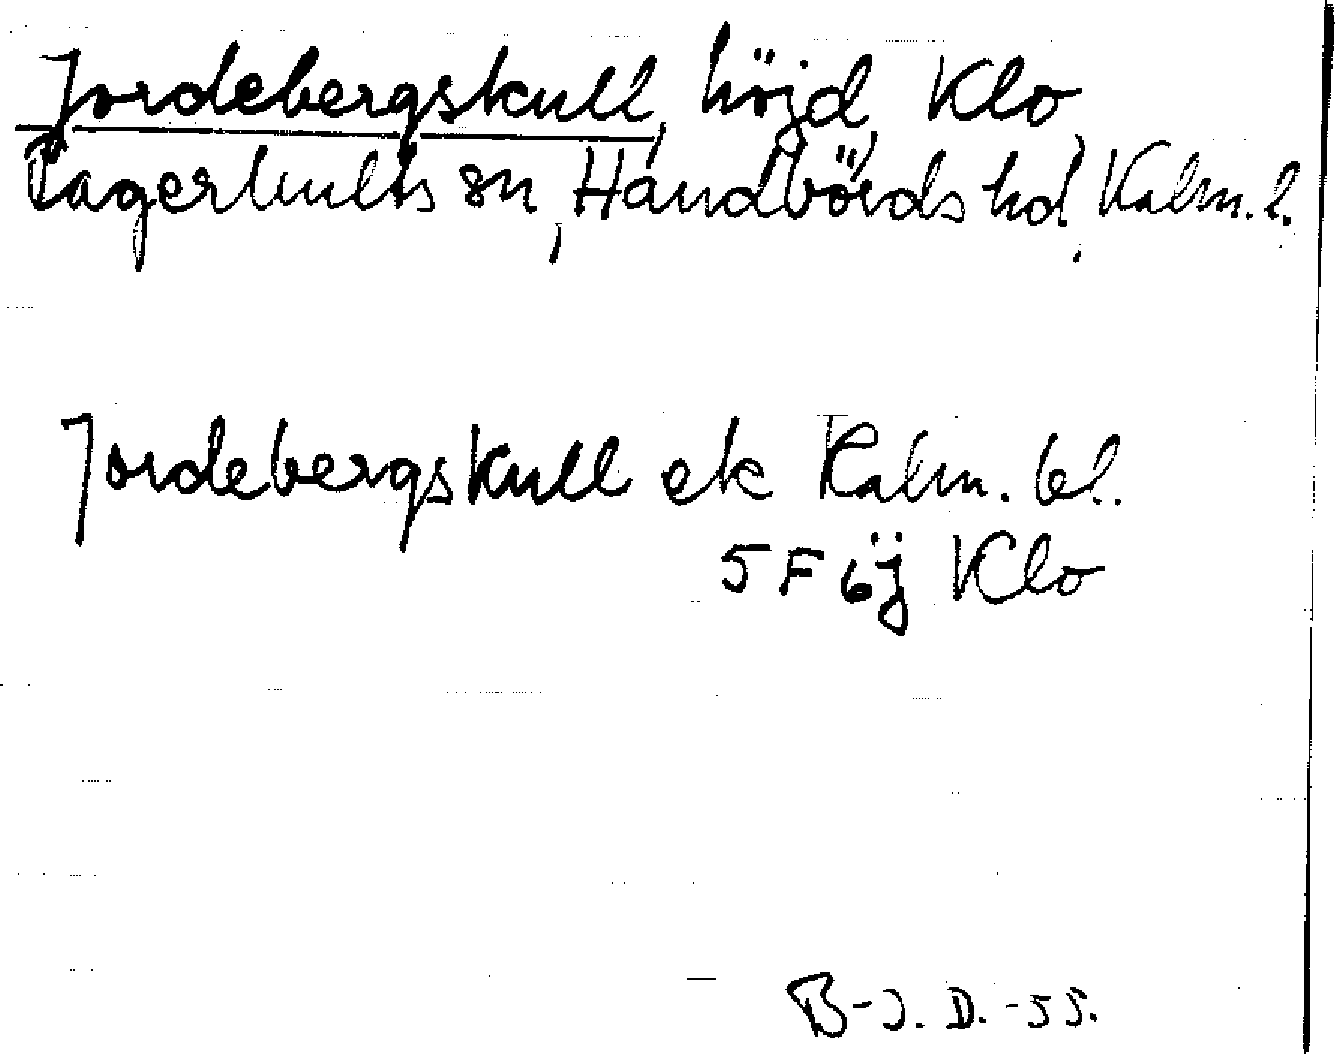 Jordebergskull, höjd, Klo
Fagerhults sn, Handbörds hd, Kalm. l.
Jordebergskull ek Kalm. bl.
5 F 6 j Klo
B-J. D. -55.